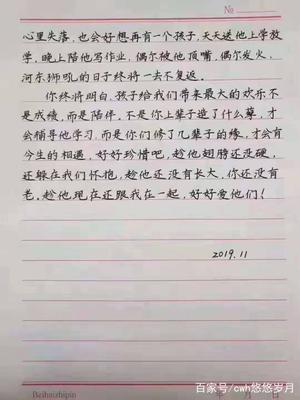 №
心里失落，也会好想再有一个孩子，天天送他上学放
学，晚上陪他写作业，偶尔被他顶嘴，偶尔发火，
河东狮吼的日子终将一去不复返。
你终将明白，孩子给我们带来最大的欢乐不
是成绩，而是陪伴。不是你上辈子造了什么孽，才
会辅导他学习，而是你们修了几辈子的缘，才会有
今生的相遇，好好珍惜吧，趁他翅膀还没硬，
还躲在我们怀抱，趁他还没有长大，你还没有
老。趁他现在还跟我在一起，好好爱他们！
2019.11
Beihaizhipin
年 月 日
百家号/cwh悠悠岁月